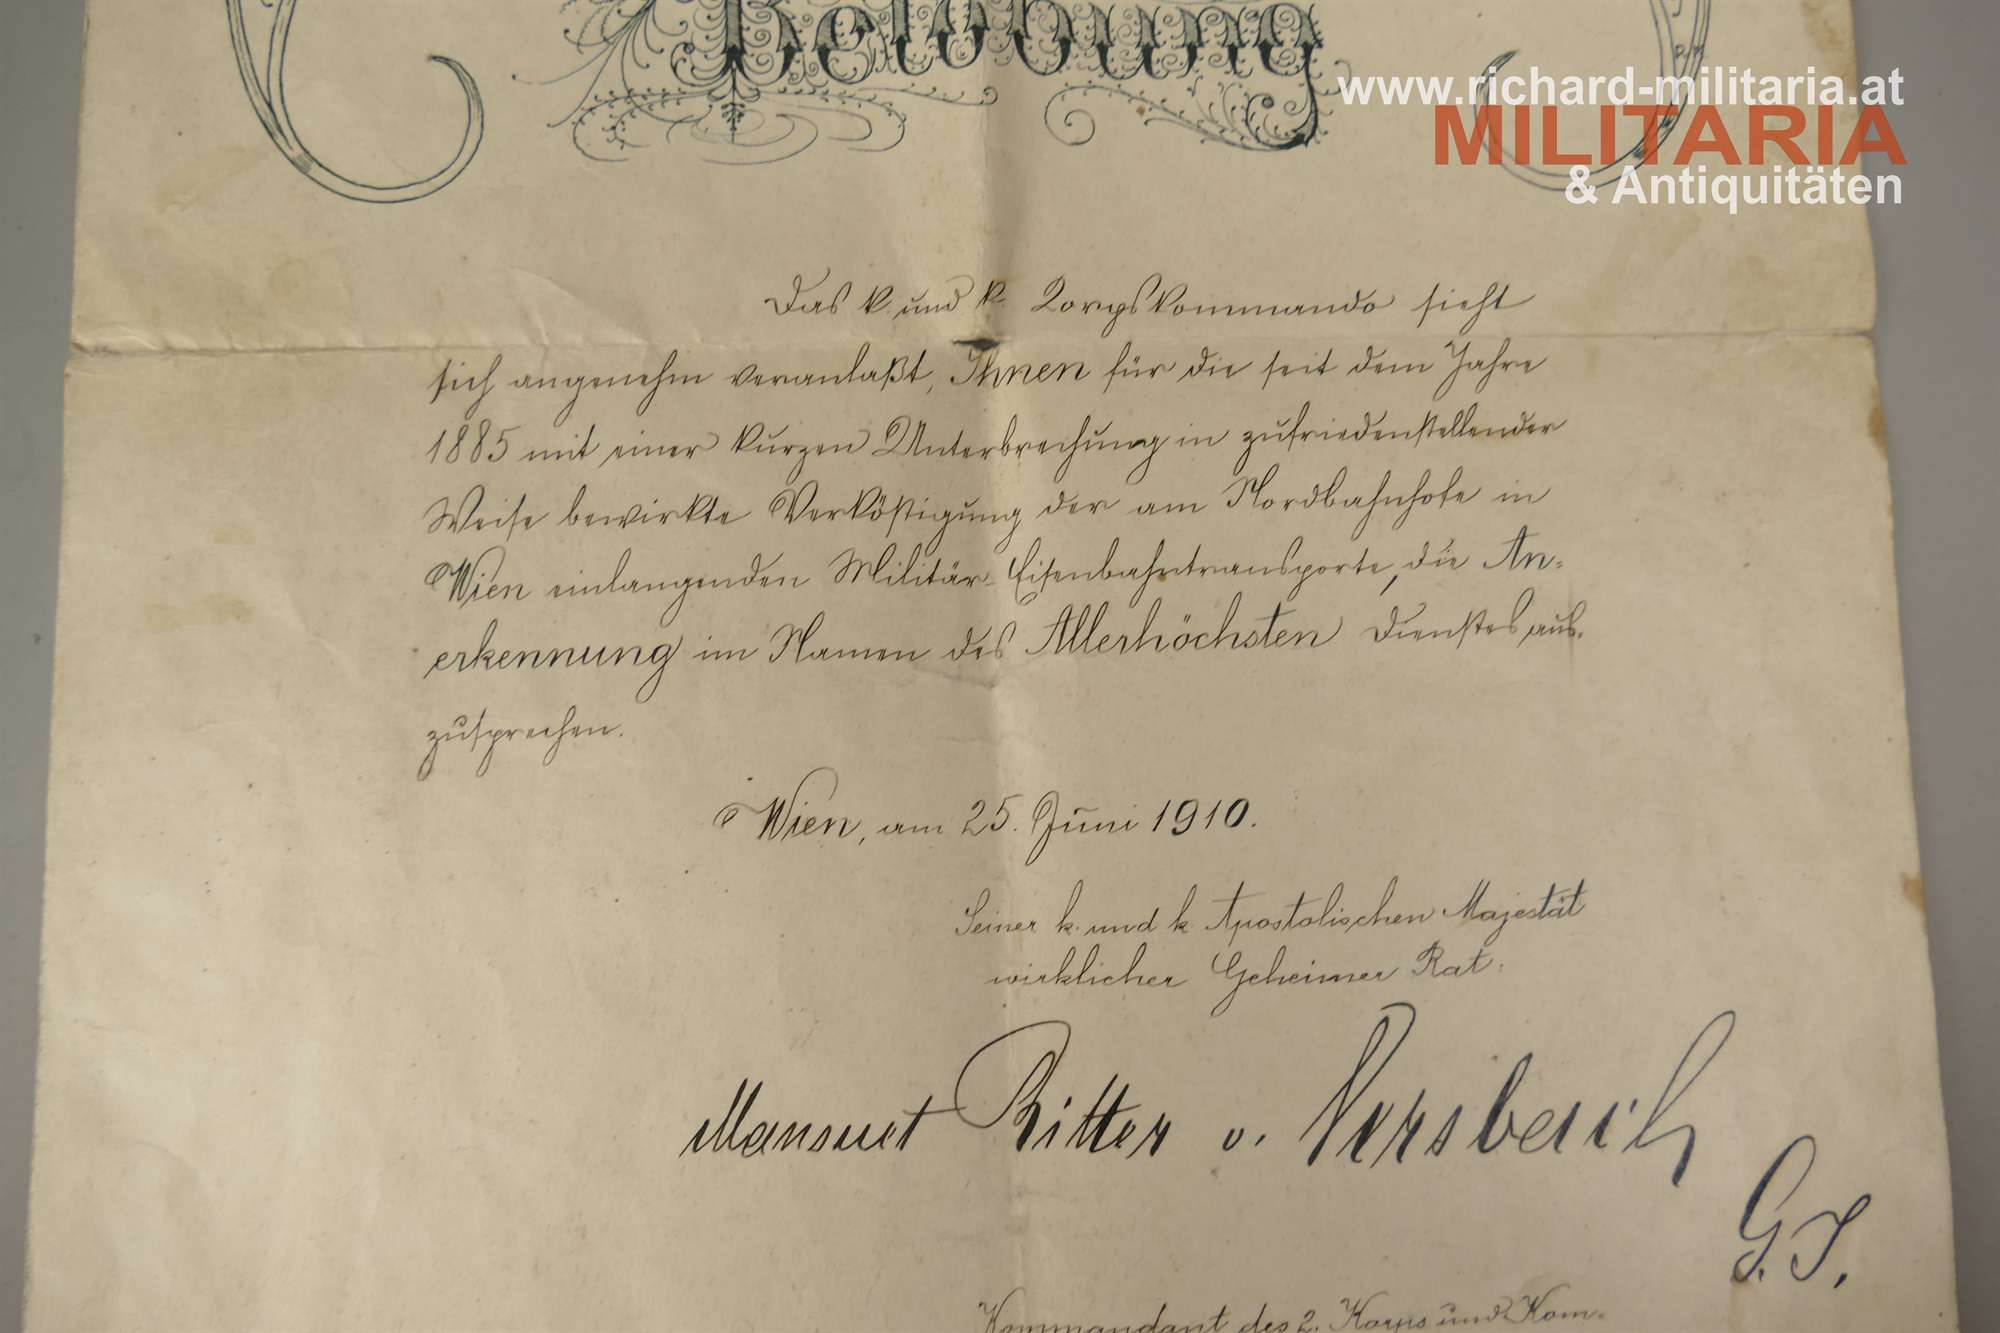 Belobung
www.richard-militaria.at
MILITARIA
& Antiquitäten
Das k. und k. Corpskommando sieht
sich angenehm veranlaßt, Ihnen für die seit dem Jahre
1885 mit einer kurzen Unterbrechung in zufriedenstellender
Weise bewirkte Verköstigung der am Nordbahnhofe in
Wien einlangenden Militär-Eisenbahntransporte, die An-
erkennung im Namen des Allerhöchsten Dienstes aus-
zusprechen.
Wien, am 25. Juni 1910.
Seiner k. und k. Apostolischen Majestät
wirklicher Geheimer Rat:
Mansuet Ritter v. Versbach
G. I.
Kommandant des 2. Korps und Kom-